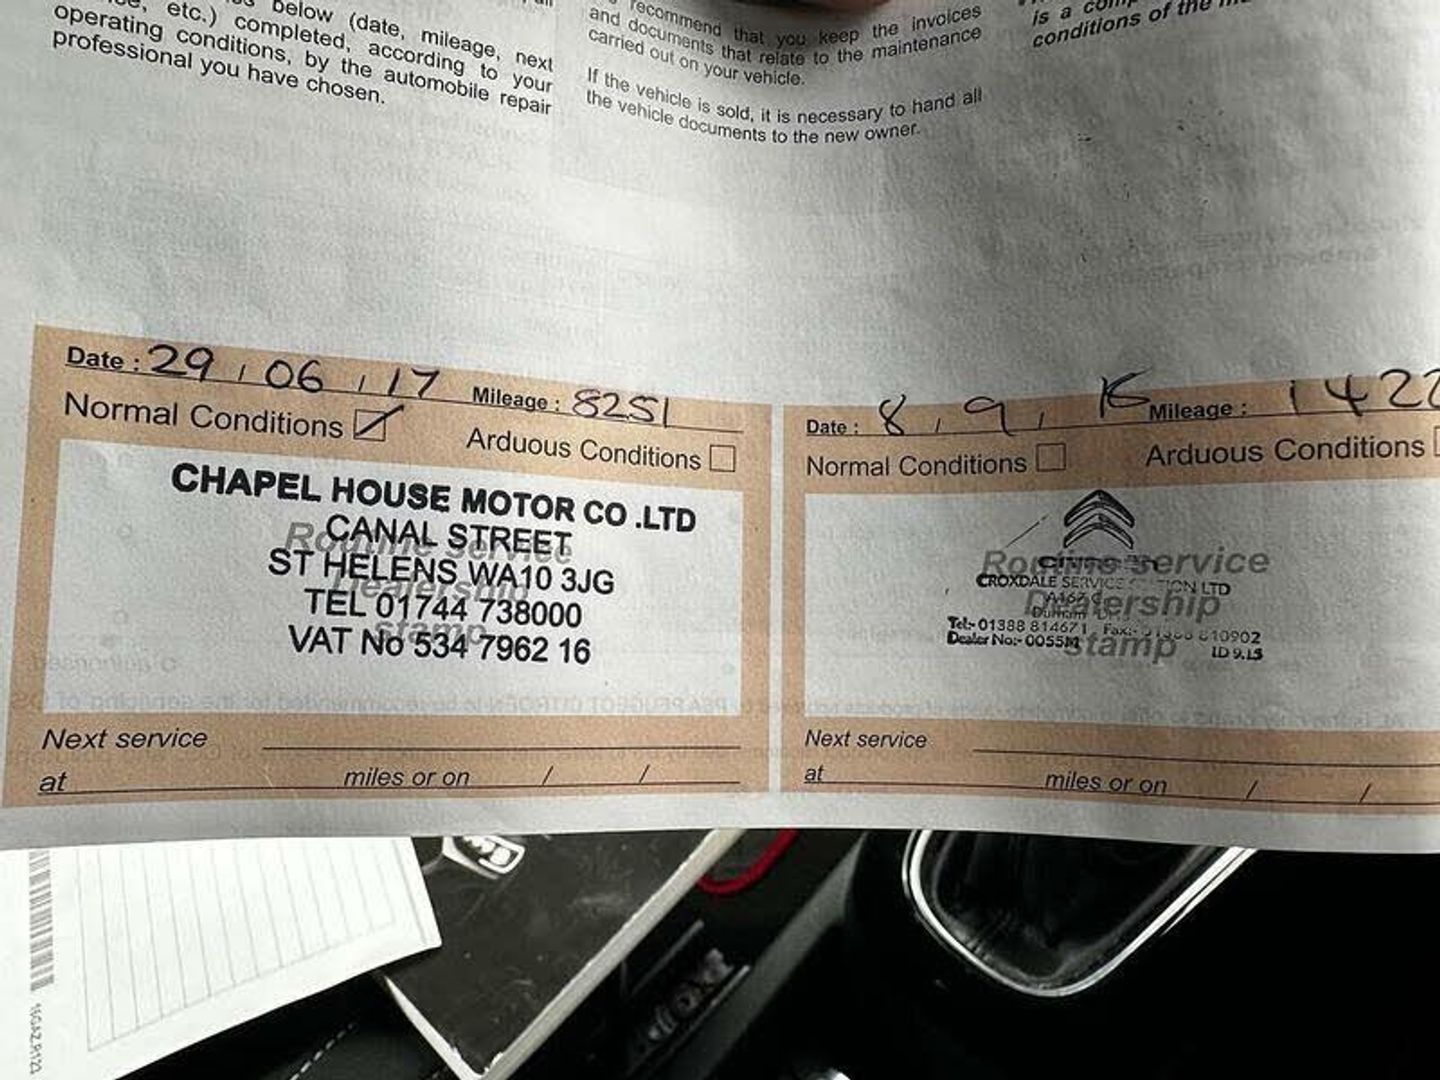 below (date, mileage, next
etc.) completed, according to your
operating conditions, by the automobile repair
professional you have chosen.
recommend that you keep the invoices
and documents that relate to the maintenance
carried out on your vehicle.
If the vehicle is sold, it is necessary to hand all
the vehicle documents to the new owner.
is a
conditions of the
Date : 29 / 06 / 17 Mileage : 8251
Normal Conditions Arduous Conditions
Routine service
Dealership
stamp
CHAPEL HOUSE MOTOR CO .LTD
CANAL STREET
ST HELENS WA10 3JG
TEL 01744 738000
VAT No 534 7962 16
Next service
at miles or on / /
Date : 8 / 9 / Mileage : 1422
Normal Conditions Arduous Conditions
Routine service
Dealership
stamp
CROXDALE SERVICE STATION LTD
Tel:- 01388 814671 Fax:- 810902
Dealer No:- 0055M ID 9.15
Next service
at miles or on / /